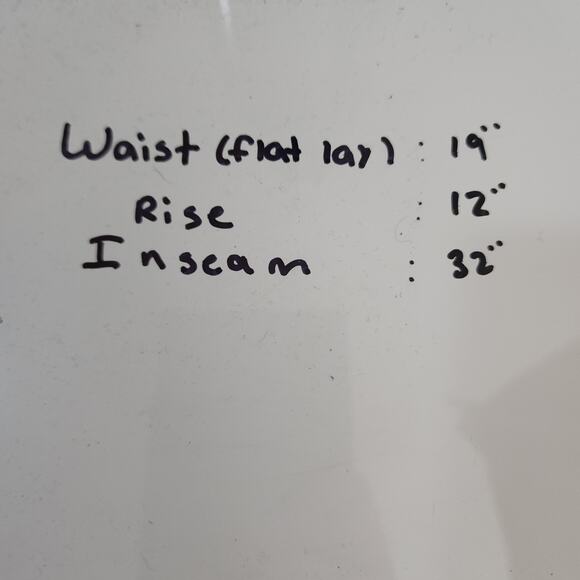 Waist (flat lay) : 19"
Rise : 12"
Inseam : 32"